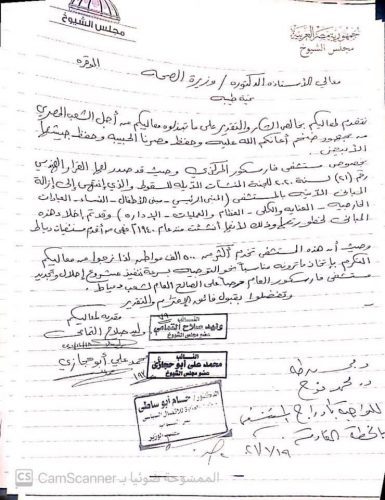 جمهورية مصر العربية
مجلس الشيوخ
مجلس الشيوخ
معالي الأستاذة الدكتورة / وزيرة الصحة الموقرة
تحية طيبة
نتقدم لمعاليكم بخالص الشكر والتقدير على ما تبذلوه معاليكم من أجل الشعب المصري
من مجهود ضخم أعانكم الله عليه وحفظ مصرنا الحبيبة وحفظ جيشها
الأبيض
بخصوص مستشفى فارسكور المركزي وحيث قد صدر لها القرار الهندسي
رقم (٢١) لسنة ٢٠٢٠ للجنة المنشآت الآيلة للسقوط والذي انتهى إلى إزالة
المباني الآتية بالمستشفى (المبنى الرئيسي - مبنى الأطفال - النساء - العيادات
الخارجية - العناية والكلى - العظام والعمليات - الإدارة) وقد تم إخلاء هذه
المباني وذلك لأنها أنشئت منذ عام ١٩٤٠ فهي من أقدم مستشفيات دمياط
وحيث أن هذه المستشفى تخدم أكثر من ٥٠٠ ألف مواطن لذا نرجوا من معاليكم
التكرم بإتخاذ ما ترونه مناسباً نحو التوجيه بسرعة تنفيذ مشروع إحلال وتجديد
مستشفى فارسكور العام حرصاً على الصالح العام لشعب دمياط
وتفضلوا بقبول فائق الاحترام والتقدير
مقدمه لمعاليكم
النائب
وليد صلاح التمامي
عضو مجلس الشيوخ
وليد صلاح التمامي
النائب
محمد علي أبو حجازي
عضو مجلس الشيوخ
محمد علي أبو حجازي
الدكتور / حسام أبو ساطي
الوزير
د. محمد
للتوجيه بإدراج المستشفى
بالخطة القادمة
الممسوحة ضوئيا بـ CamScanner
CS